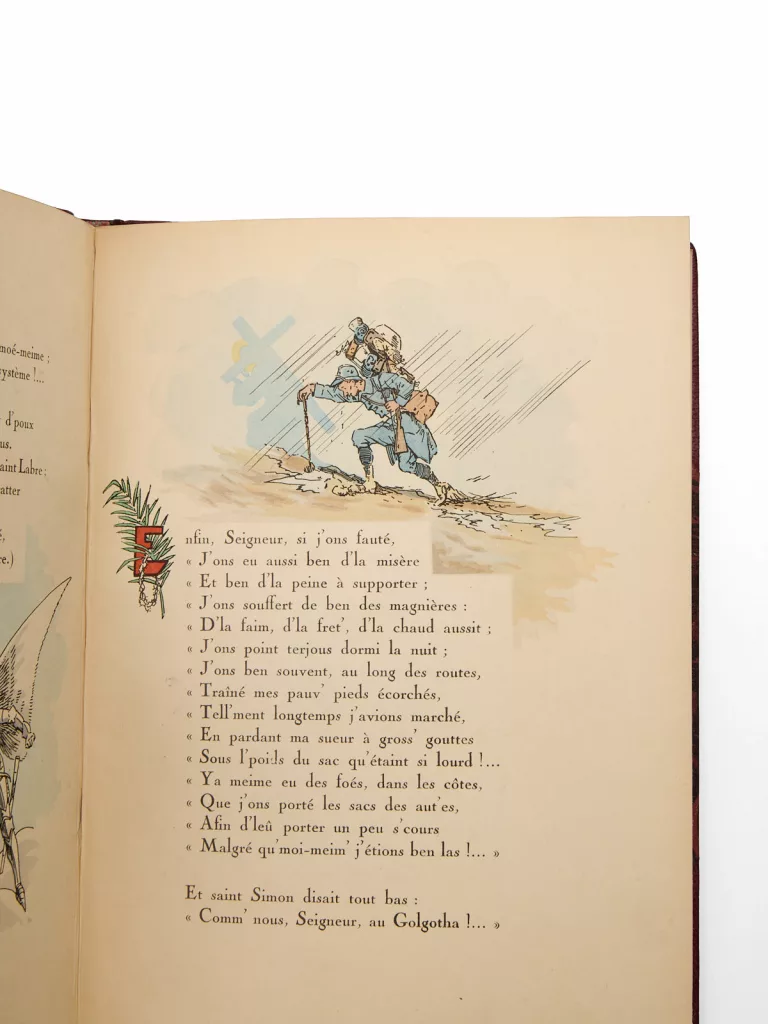 moé-meime ;
ystème !...
d'poux
us.
aint Labre ;
atter
re.)
Enfin, Seigneur, si j'ons fauté,
« J'ons eu aussi ben d'la misère
« Et ben d'la peine à supporter ;
« J'ons souffert de ben des magnières :
« D'la faim, d'la fret', d'la chaud aussit ;
« J'ons point terjous dormi la nuit ;
« J'ons ben souvent, au long des routes,
« Traîné mes pauv' pieds écorchés,
« Tell'ment longtemps j'avions marché,
« En pardant ma sueur à gross' gouttes
« Sous l'poids du sac qu'étaint si lourd !...
« Ya meime eu des foés, dans les côtes,
« Que j'ons porté les sacs des aut'es,
« Afin d'leû porter un peu s'cours
« Malgré qu'moi-meim' j'étions ben las !... »
Et saint Simon disait tout bas :
« Comm' nous, Seigneur, au Golgotha !... »